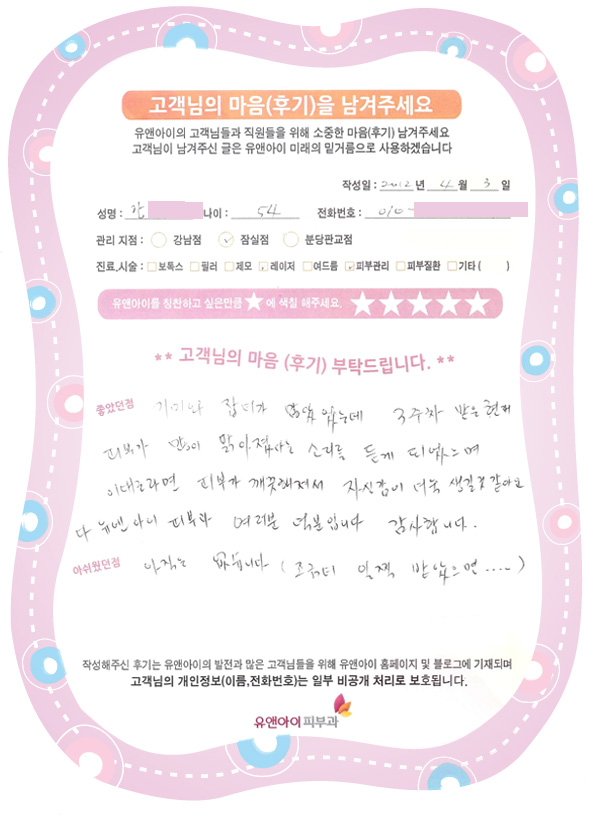 고객님의 마음(후기)을 남겨주세요
유앤아이의 고객님들과 직원들을 위해 소중한 마음(후기) 남겨주세요
고객님이 남겨주신 글은 유앤아이 미래의 밑거름으로 사용하겠습니다
작성일 : 2012 년 4 월 3 일
성명 : 한 나이 : 54 전화번호 : 010-
관리 지점 : 강남점 잠실점 분당판교점
진료,시술 : 보톡스 필러 제모 레이저 여드름 피부관리 피부질환 기타 ( )
유앤아이를 칭찬하고 싶은만큼 ★ 에 색칠 해주세요. ★★★★★
** 고객님의 마음 (후기) 부탁드립니다. **
좋았던점 기미와 잡티가 많았었는데 3주차 받은 현재
피부가 많이 맑아졌다는 소리를 듣게 되었으며
이대로라면 피부가 깨끗해져서 자신감이 더욱 생길것 같아요
다 유엔아이 피부과 여러분 덕분입니다 감사합니다.
아쉬웠던점 아직은 없습니다 (조금더 일찍 받았으면 ....)
작성해주신 후기는 유앤아이의 발전과 많은 고객님들을 위해 유앤아이 홈페이지 및 블로그에 기재되며
고객님의 개인정보(이름,전화번호)는 일부 비공개 처리로 보호됩니다.
유앤아이피부과